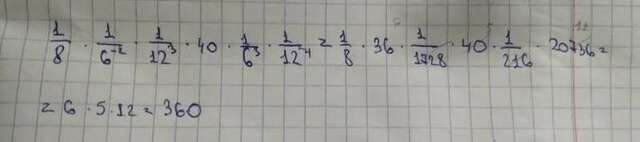 1/8 · 1/6⁻² · 1/12³ · 40 · 1/6³ · 1/12⁻⁴ = 1/8 · 36 · 1/1728 · 40 · 1/216 · 20736 =
= 6 · 5 · 12 = 360